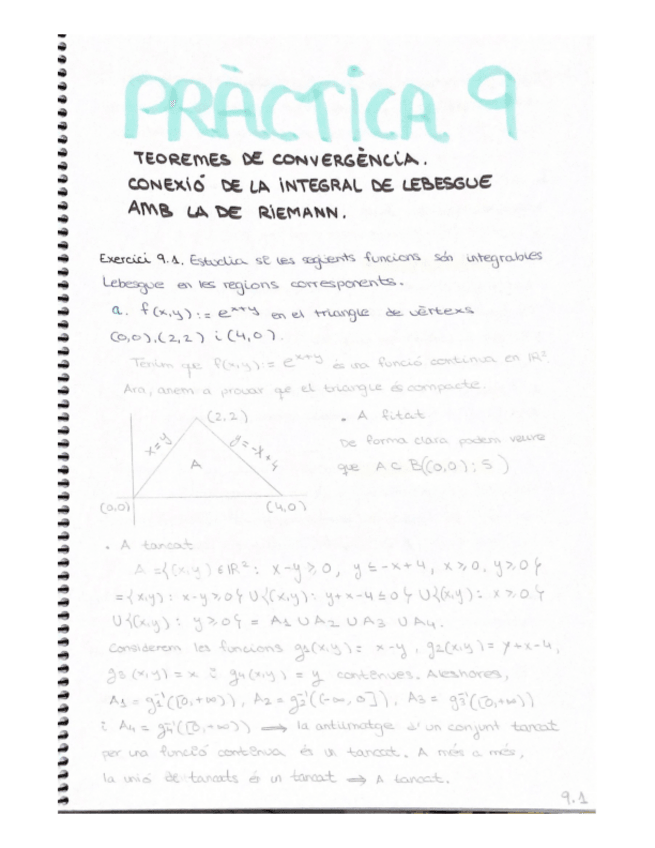 PRÀCTICA 9
TEOREMES DE CONVERGÈNCIA.
CONEXIÓ DE LA INTEGRAL DE LEBESGUE
AMB LA DE RIEMANN.
Exercici 9.1. Estudia si les següents funcions són integrables
Lebesgue en les regions corresponents.
a. f(x,y) := e^{x+y} en el triangle de vèrtexs
(0,0), (2,2) i (4,0).
Tenim que f(x,y) := e^{x+y} és una funció contínua en IR²
Ara, anem a provar que el triangle és compacte.
(2,2)
x=y
y=-x+4
A
(0,0)
(4,0)
. A fitat
De forma clara podem veure
que A ⊂ B((0,0); 5)
. A tancat
A = {(x,y) ∈ IR²: x-y ≥ 0, y ≤ -x+4, x ≥ 0, y ≥ 0}
= {(x,y): x-y ≥ 0} ∪ {(x,y): y+x-4 ≤ 0} ∪ {(x,y): x ≥ 0}
∪ {(x,y): y ≥ 0} = A1 ∪ A2 ∪ A3 ∪ A4.
Considerem les funcions g1(x,y) = x-y, g2(x,y) = y+x-4,
g3(x,y) = x i g4(x,y) = y contínues. Aleshores,
A1 = g1⁻¹([0,+∞)), A2 = g2⁻¹((-∞,0]), A3 = g3⁻¹([0,+∞))
i A4 = g4⁻¹([0,+∞)) ⟹ la antiimatge d'un conjunt tancat
per una funció contínua és un tancat. A més a més,
la unió de tancats és un tancat ⟹ A tancat.
9.1